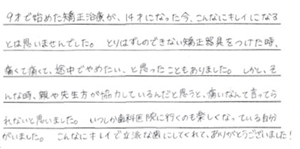 9才で始めた矯正治療が、14才になった今、こんなにキレイになる
とは思いませんでした。 とりはずしのできない矯正器具をつけた時、
痛くて痛くて、途中でやめたい、と思ったこともありました。 しかし、そ
んな時、親や先生方が協力しているんだと思うと、痛いなんて言ってら
れないと思いました。 いつしか歯科医院に行くのも楽しくなっている自分
がいました。 こんなにキレイで立派な歯にしてくれて、ありがとうございました!